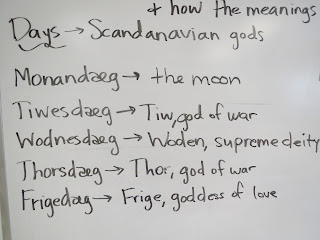 + how the meanings
Days → Scandanavian gods
Monandæg → the moon
Tiwesdæg → Tiw, god of war
Wodnesdæg → Woden, supreme deity
Thorsdæg → Thor, god of war
Frigedæg → Frige, goddess of love